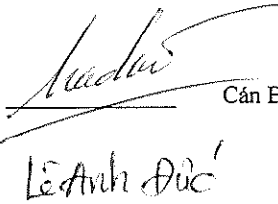 Cán B
Lê Anh Đức